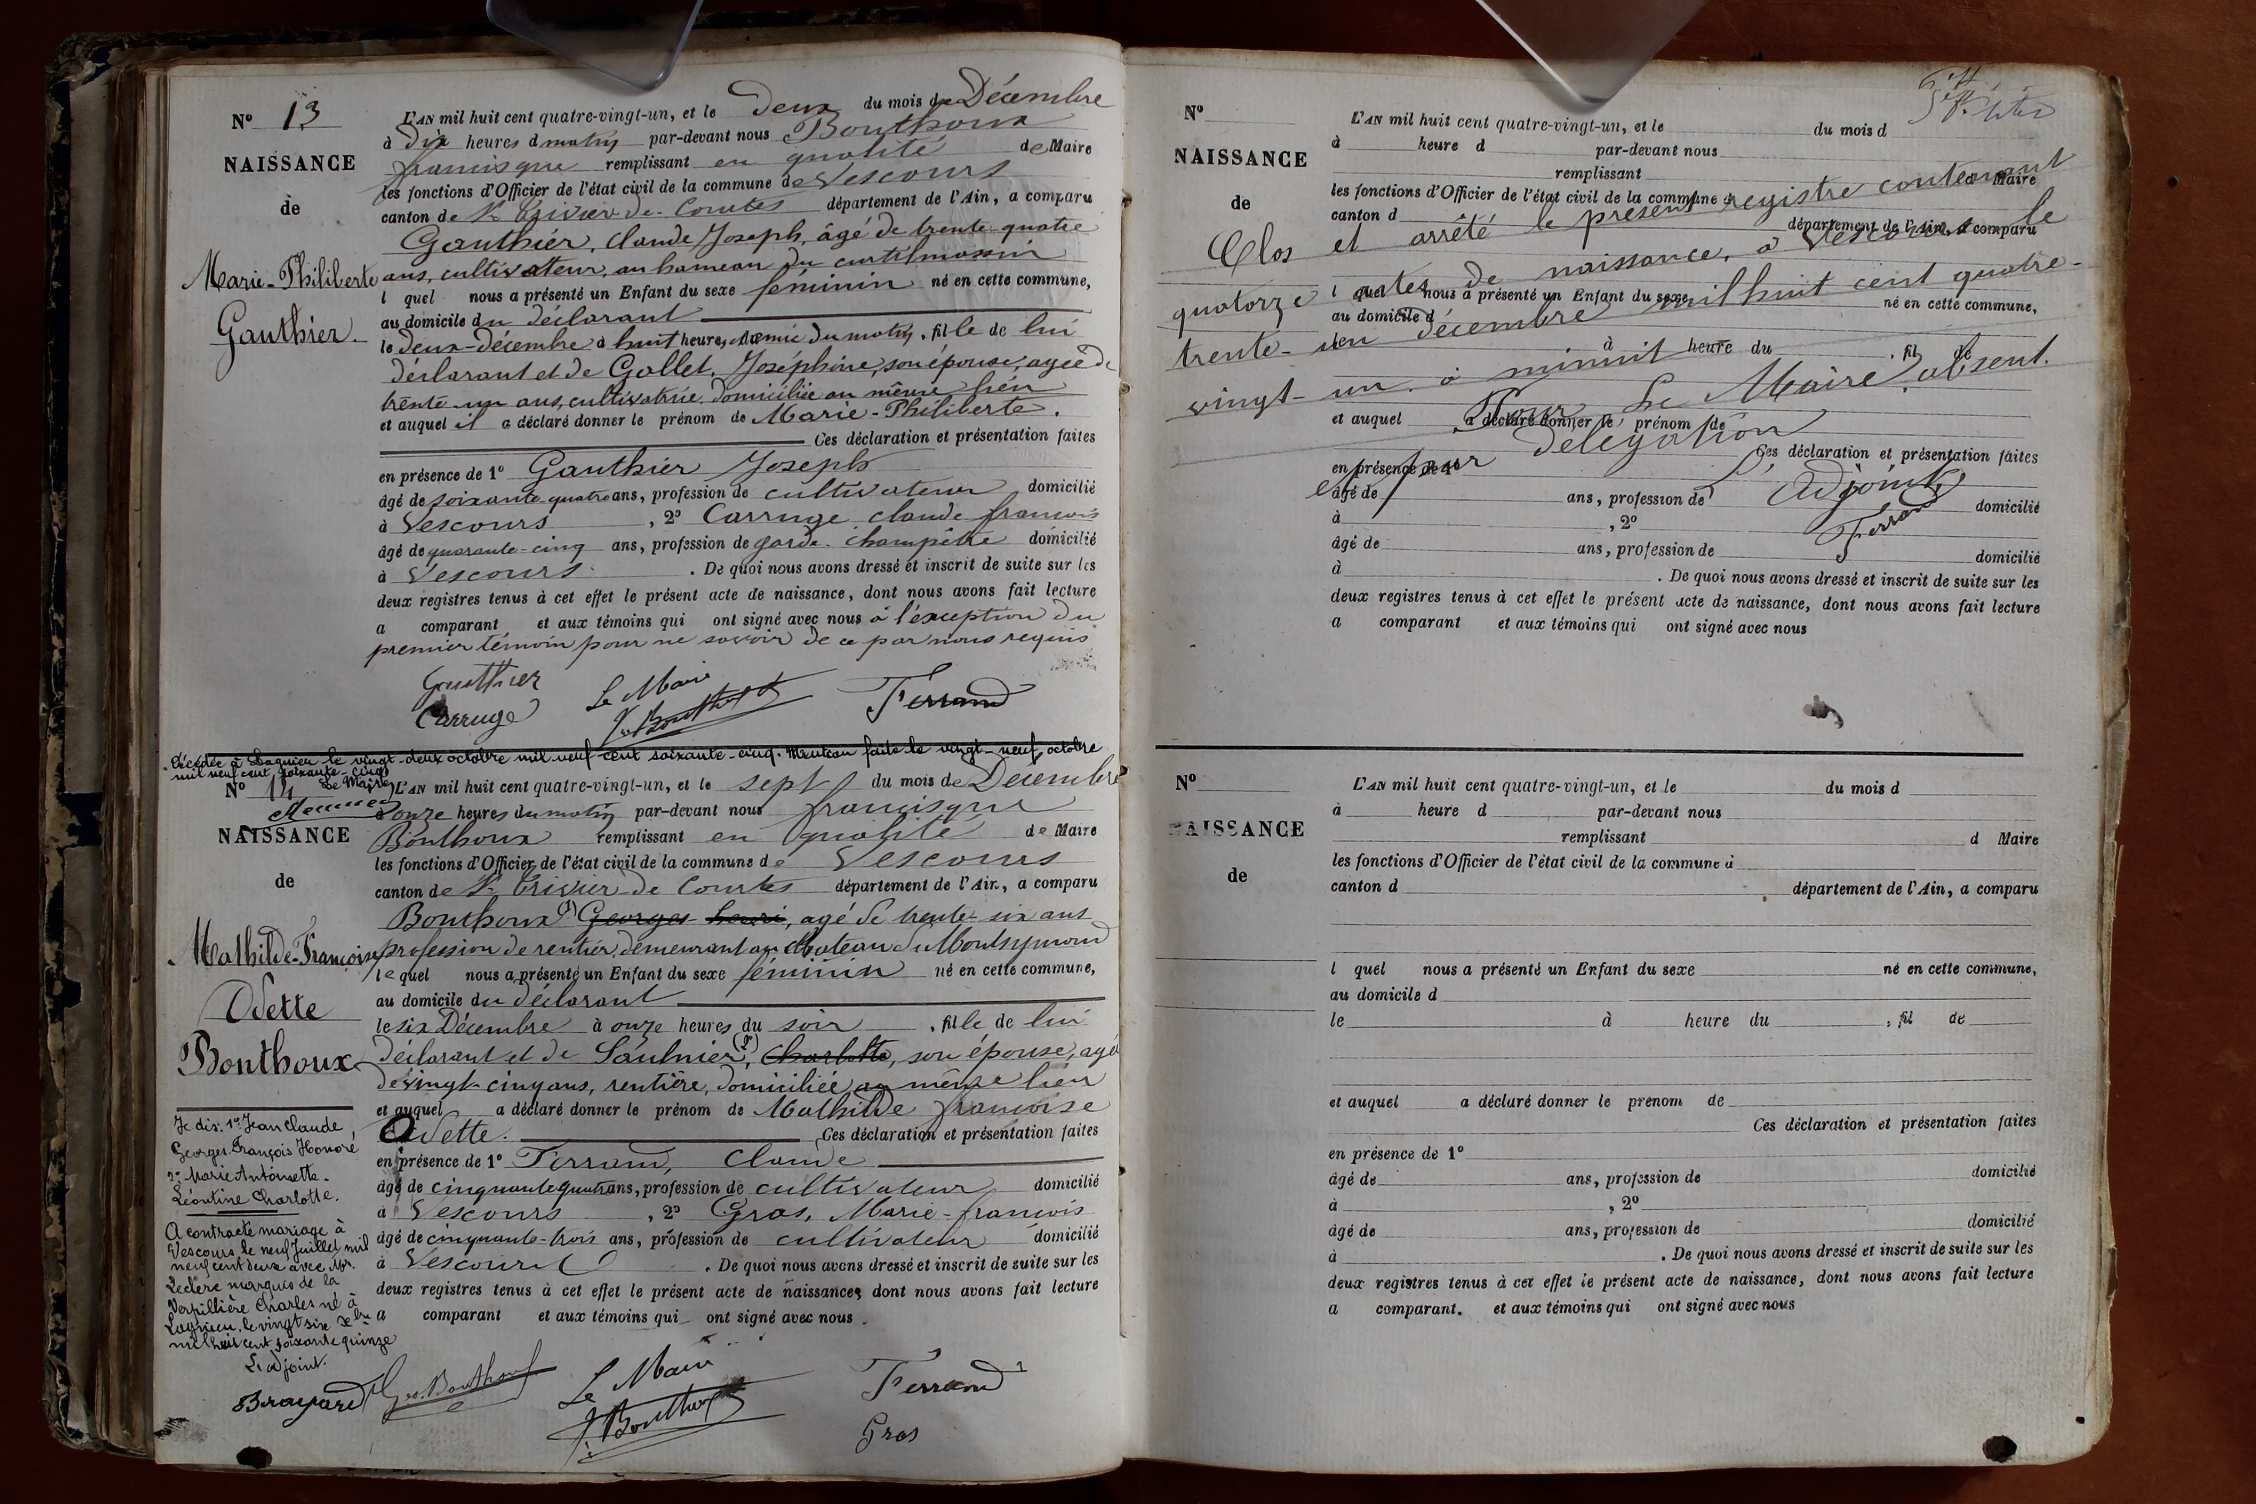 N° 13
NAISSANCE
de
Marie-Philiberte
Gauthier.
L'AN mil huit cent quatre-vingt-un, et le deux du mois de Décembre
à dix heures d matin par-devant nous Bouthoux
francisque remplissant en qualité de Maire
les fonctions d'Officier de l'état civil de la commune de Vescours
canton de St Trivier-de-Courtes département de l'Ain, a comparu
Gauthier, Claude Joseph, âgé de trente-quatre
ans, cultivateur, au hameau du curtilmassin
l quel nous a présenté un Enfant du sexe féminin né en cette commune,
au domicile du déclarant
le deux-décembre à huit heures, demie du matin, fille de lui
déclarant et de Gallet, Joséphine, son épouse, agée de
trente-un ans, cultivatrice, domiciliée au même lieu
et auquel il a déclaré donner le prénom de Marie-Philiberte.
Ces déclaration et présentation faites
en présence de 1° Gauthier Joseph
âgé de soixante-quatre ans, profession de cultivateur domicilié
à Vescours, 2° Carruge, claude francois
âgé de quarante-cinq ans, profession de garde-champêtre domicilié
à Vescours. De quoi nous avons dressé et inscrit de suite sur les
deux registres tenus à cet effet le présent acte de naissance, dont nous avons fait lecture
a comparant et aux témoins qui ont signé avec nous à l'exception du
premier témoin pour ne savoir de ce par nous requis
Gauthier Le Maire Ferrand
Carruge Bouthoux
Décédée à Lagnieu le vingt-deux octobre mil neuf cent soixante-cinq. Mention faite le vingt-neuf octobre
mil neuf cent soixante-cinq
Le Maire
N° 14
NAISSANCE
de
Mathilde-Françoise
Odette
Bonthoux
L'AN mil huit cent quatre-vingt-un, et le sept du mois de Décembre
à onze heures du matin par-devant nous francisque
Bonthoux remplissant en qualité de Maire
les fonctions d'Officier de l'état civil de la commune de Vescours
canton de St Trivier-de-Courtes département de l'Ain, a comparu
Bonthoux (1) Georges henri, agé de trente-six ans
profession de rentier, demeurant au chateau de Montsymond
lequel nous a présenté un Enfant du sexe féminin né en cette commune,
au domicile du déclarant
le six Décembre à onze heures du soir, fille de lui
déclarant et de Saulnier (2), Charlotte, son épouse, agée
de vingt-cinq ans, rentière, domiciliée au même lieu
et auquel a déclaré donner le prénom de Mathilde françoise
Odette. Ces déclaration et présentation faites
en présence de 1° Ferrand, Claude
âgé de cinquante quatre ans, profession de cultivateur domicilié
à Vescours, 2° Gras, Marie-françois
âgé de cinquante-trois ans, profession de cultivateur domicilié
à Vescours. De quoi nous avons dressé et inscrit de suite sur les
deux registres tenus à cet effet le présent acte de naissance, dont nous avons fait lecture
a comparant et aux témoins qui ont signé avec nous.
Je dis: 1° Jean Claude,
Georges François Honoré
2° Marie Antoinette-
Léontine Charlotte.
A contracté mariage à
Vescours le neuf Juillet mil
neuf cent deux avec Mr.
Leclerc marquis de la
Verpillière Charles né à
Lagnieu, le vingt six Xbre
mil huit cent soixante quinze
L'adjoint.
Brayard Geo. Bonthoux Le Maire Ferrand
F. Bonthoux Gras
N°
NAISSANCE
de
L'AN mil huit cent quatre-vingt-un, et le du mois d
à heure d par-devant nous
remplissant d Maire
les fonctions d'Officier de l'état civil de la commune d
canton d département de l'Ain, a comparu
l quel nous a présenté un Enfant du sexe né en cette commune,
au domicile d
le à heure du , fil de
et auquel a déclaré donner le prénom de
Ces déclaration et présentation faites
en présence de 1°
âgé de ans, profession de domicilié
à , 2°
âgé de ans, profession de domicilié
à . De quoi nous avons dressé et inscrit de suite sur les
deux registres tenus à cet effet le présent acte de naissance, dont nous avons fait lecture
a comparant et aux témoins qui ont signé avec nous
Clos et arrêté le présent registre contenant
quatorze actes de naissance, à Vescours le
trente-un décembre mil huit cent quatre-
vingt-un à minuit
Pour Le Maire absent.
et par délégation
L'Adjoint
Ferrand
N°
NAISSANCE
de
L'AN mil huit cent quatre-vingt-un, et le du mois d
à heure d par-devant nous
remplissant d Maire
les fonctions d'Officier de l'état civil de la commune d
canton d département de l'Ain, a comparu
l quel nous a présenté un Enfant du sexe né en cette commune,
au domicile d
le à heure du , fil de
et auquel a déclaré donner le prenom de
Ces déclaration et présentation faites
en présence de 1°
âgé de ans, profession de domicilié
à , 2°
âgé de ans, profession de domicilié
à . De quoi nous avons dressé et inscrit de suite sur les
deux registres tenus à cet effet le présent acte de naissance, dont nous avons fait lecture
a comparant. et aux témoins qui ont signé avec nous